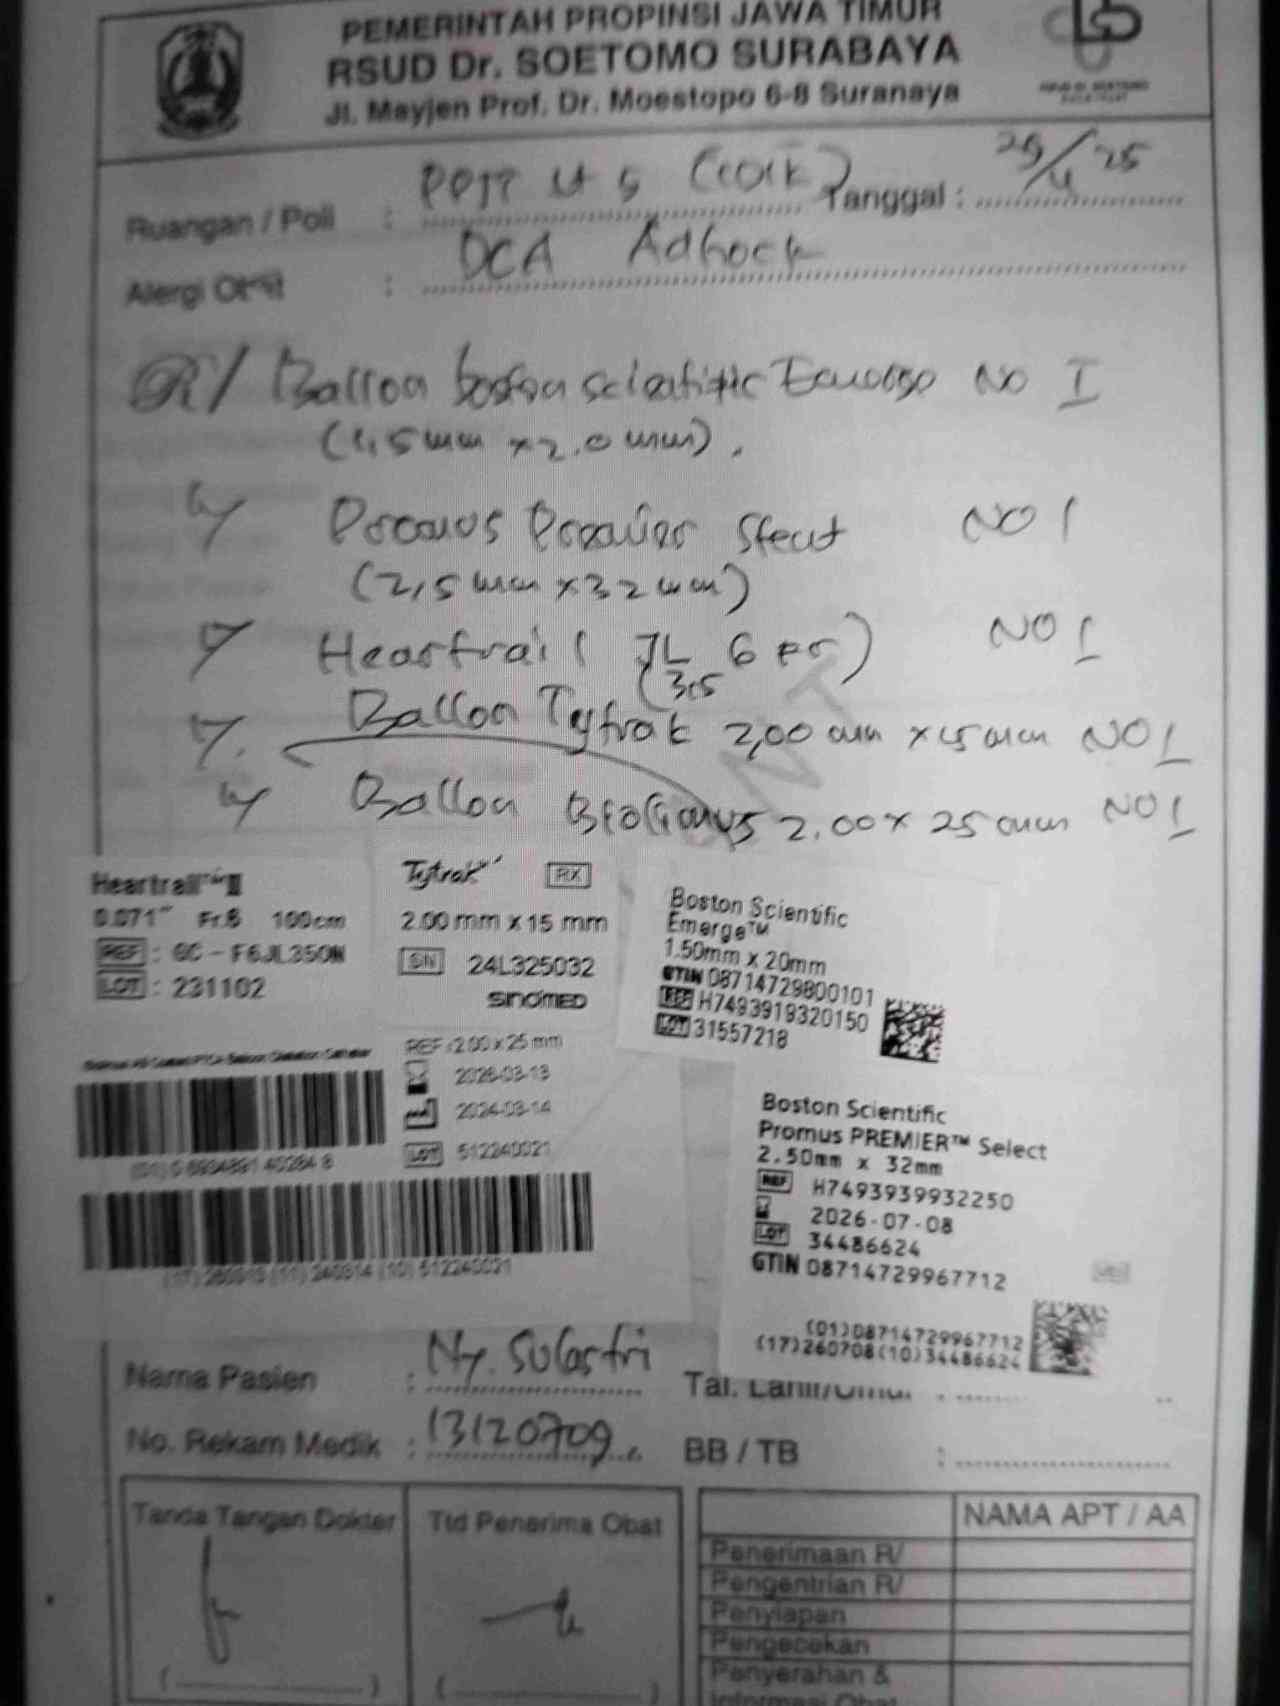 PEMERINTAH PROPINSI JAWA TIMUR
RSUD Dr. SOETOMO SURABAYA
Jl. Mayjen Prof. Dr. Moestopo 6-8 Suranaya
Ruangan / Poli : PPJT Lt 5 Tanggal : 29/4 25
Alergi Obat : DCA Adhock
R/ Balloon boston scientific Emerge NO I
(1,5 mm x 2.0 mm).
Promus Premier Stent NO I
(2,5 mm x 32 mm)
Heartrail (JL 6 Fr) NO I
3.5
Ballon Tytrak 2,00 mm x 15 mm NO I
Ballon 2.00 x 25 mm NO I
Heartrail™ II
0.071" Fr.6 100cm
REF : GC - F6JL350N
LOT : 231102
Tytrak™ RX
2.00 mm x 15 mm
SN 24L325032
SINOMED
Boston Scientific
Emerge™
1.50mm x 20mm
GTIN 08714729800101
REF H7493919320150
LOT 31557218
REF :2.00 x 25 mm
2026-03-13
2024-03-14
LOT 512240021
(17) 260313 (11) 240314 (10) 512240021
Boston Scientific
Promus PREMIER™ Select
2.50mm x 32mm
REF H7493939932250
2026-07-08
LOT 34486624
GTIN 08714729967712
(01)08714729967712
(17)260708(10)34486624
Nama Pasien : Ny. Sulastri
No. Rekam Medik : 13120709 BB / TB :
Tanda Tangan Dokter Ttd Penerima Obat NAMA APT / AA
Penerimaan R/
Pengentrian R/
Penyiapan
Pengecekan
Penyerahan &
Informasi Obat